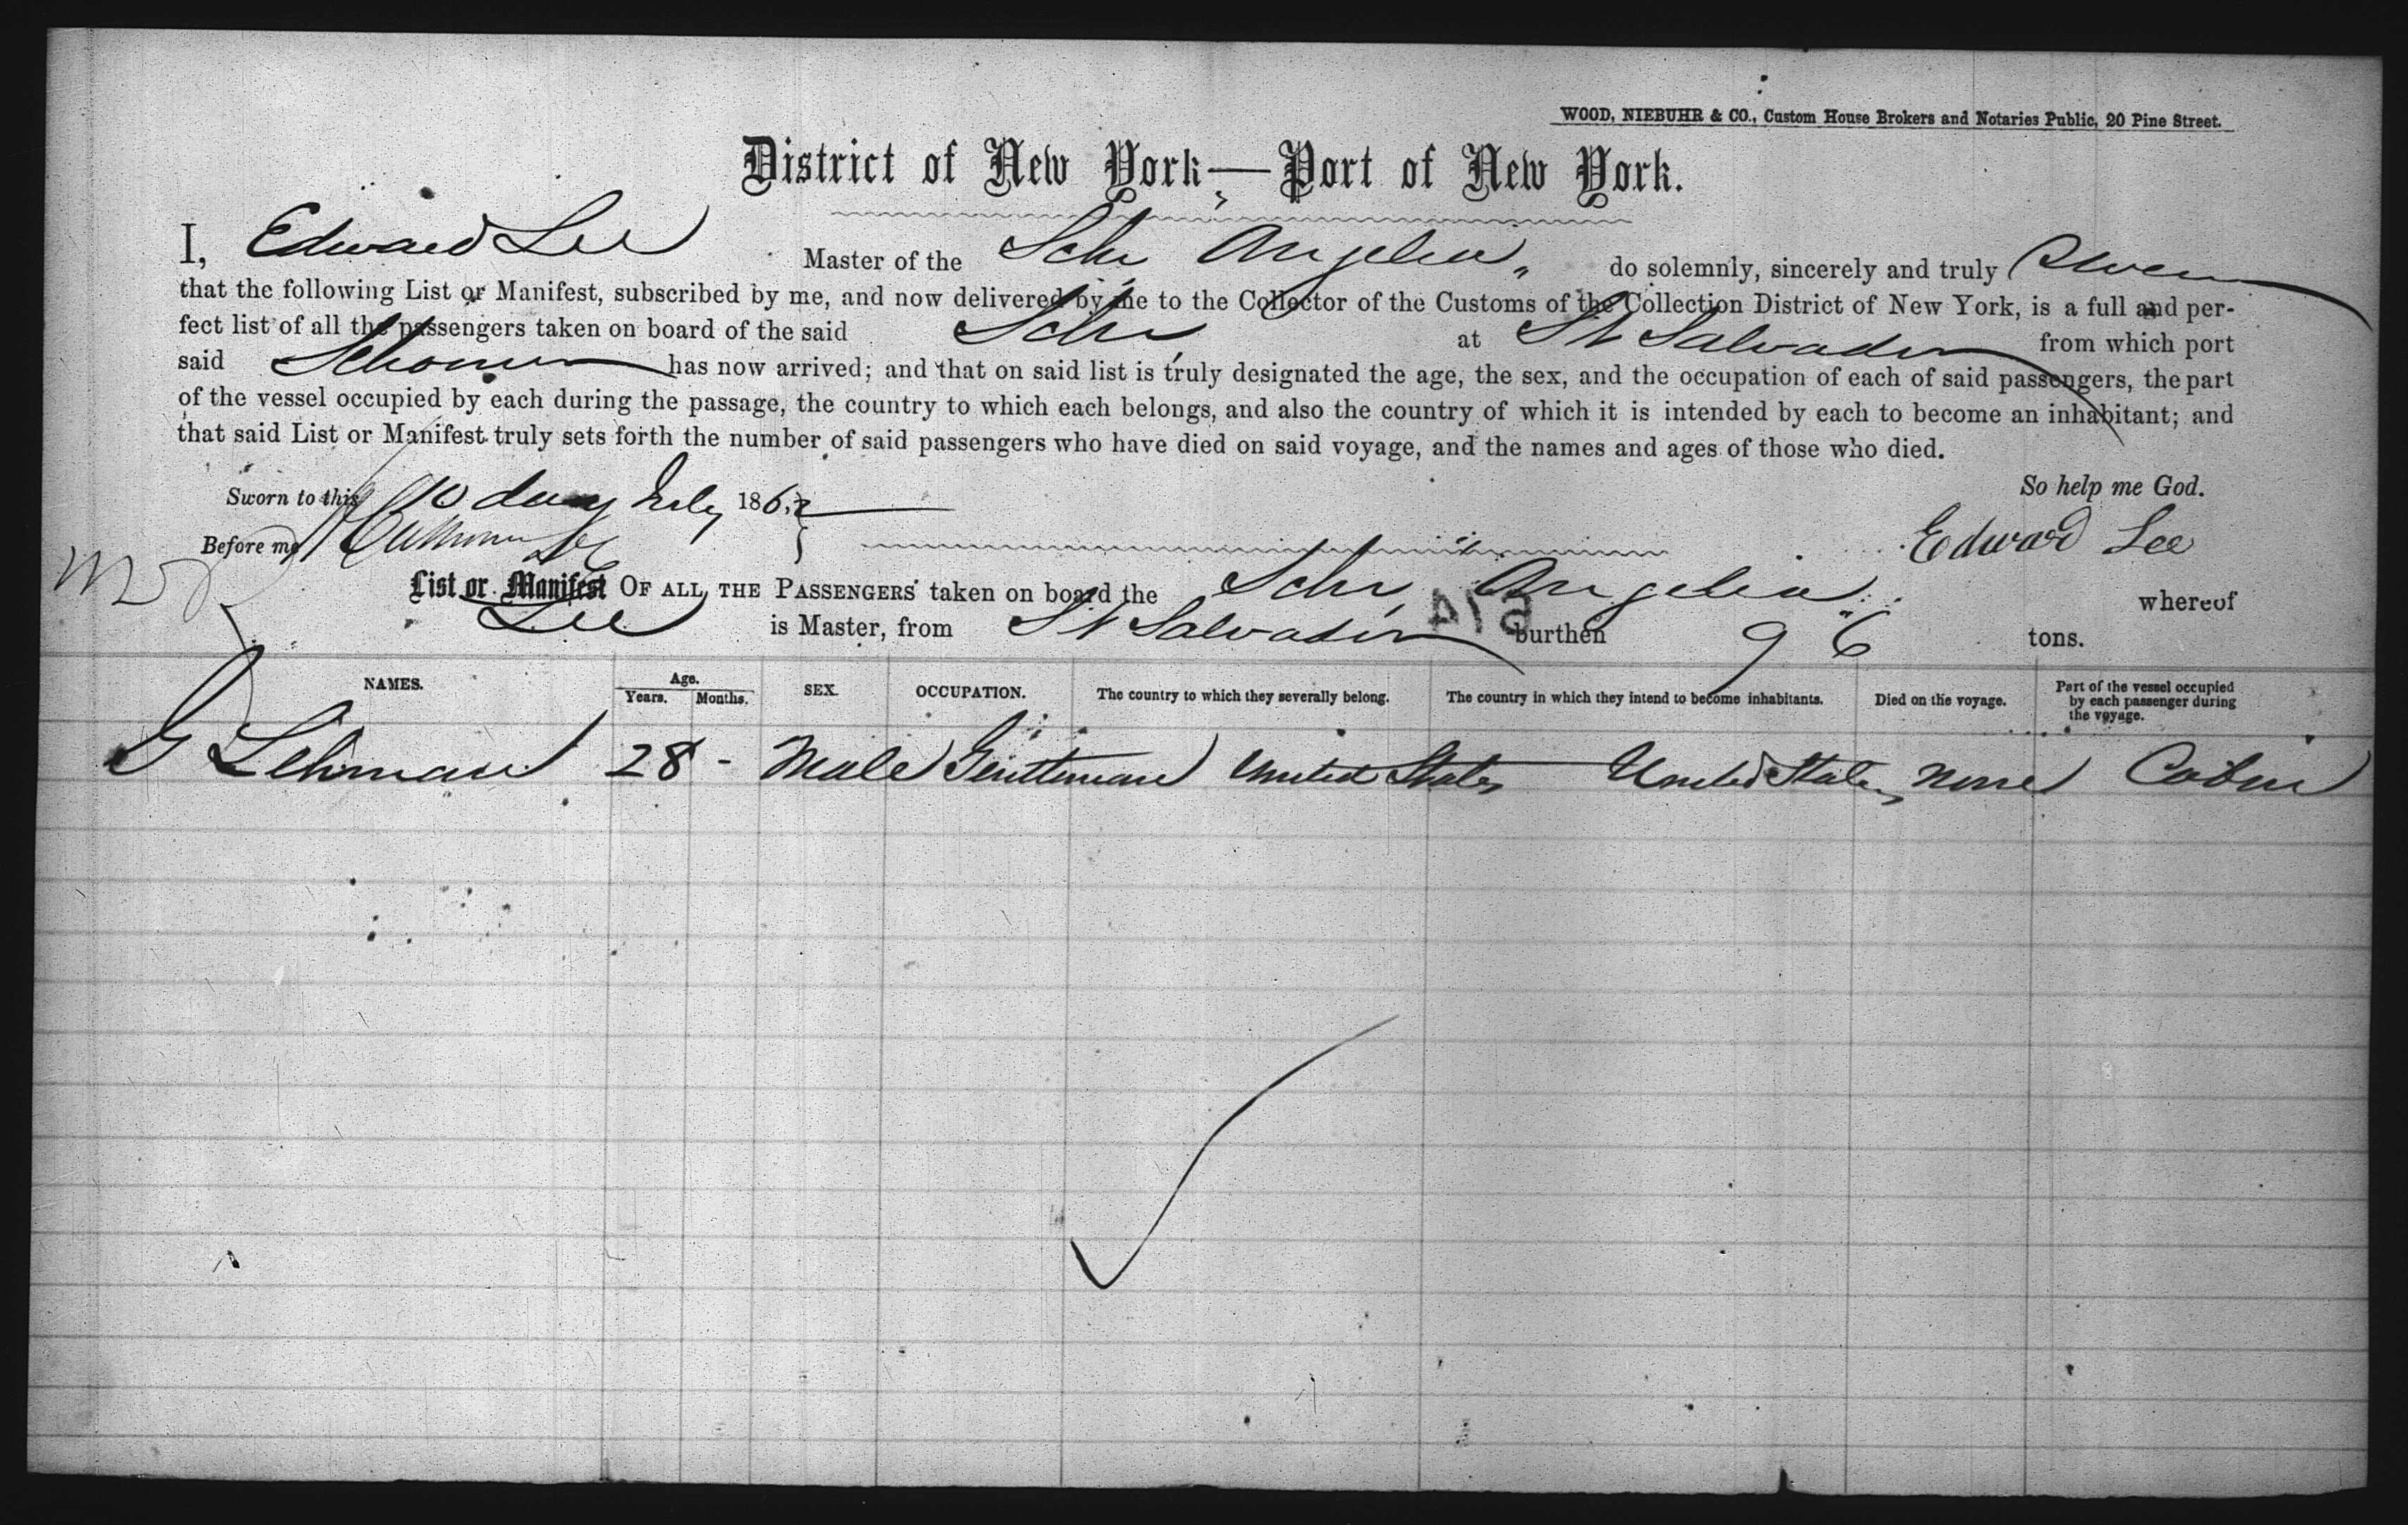 WOOD, NIEBUHR & CO., Custom House Brokers and Notaries Public, 20 Pine Street.
District of New York—Port of New York.
I, Edward Lee Master of the Schr Angelia, do solemnly, sincerely and truly Swear
that the following List or Manifest, subscribed by me, and now delivered by me to the Collector of the Customs of the Collection District of New York, is a full and per-
fect list of all the passengers taken on board of the said Schr at St Salvador from which port
said Schooner has now arrived; and that on said list is truly designated the age, the sex, and the occupation of each of said passengers, the part
of the vessel occupied by each during the passage, the country to which each belongs, and also the country of which it is intended by each to become an inhabitant; and
that said List or Manifest truly sets forth the number of said passengers who have died on said voyage, and the names and ages of those who died.
Sworn to this 10 day July 1862 So help me God.
Before me Edward Lee
List or Manifest OF ALL THE PASSENGERS taken on board the Schr Angelia whereof
Lee is Master, from St Salvador burthen 96 tons.
514
NAMES. Age. Years. Months. SEX. OCCUPATION. The country to which they severally belong. The country in which they intend to become inhabitants. Died on the voyage. Part of the vessel occupied by each passenger during the voyage.
G Lehman 28 - Male Gentleman United States United States none Cabin